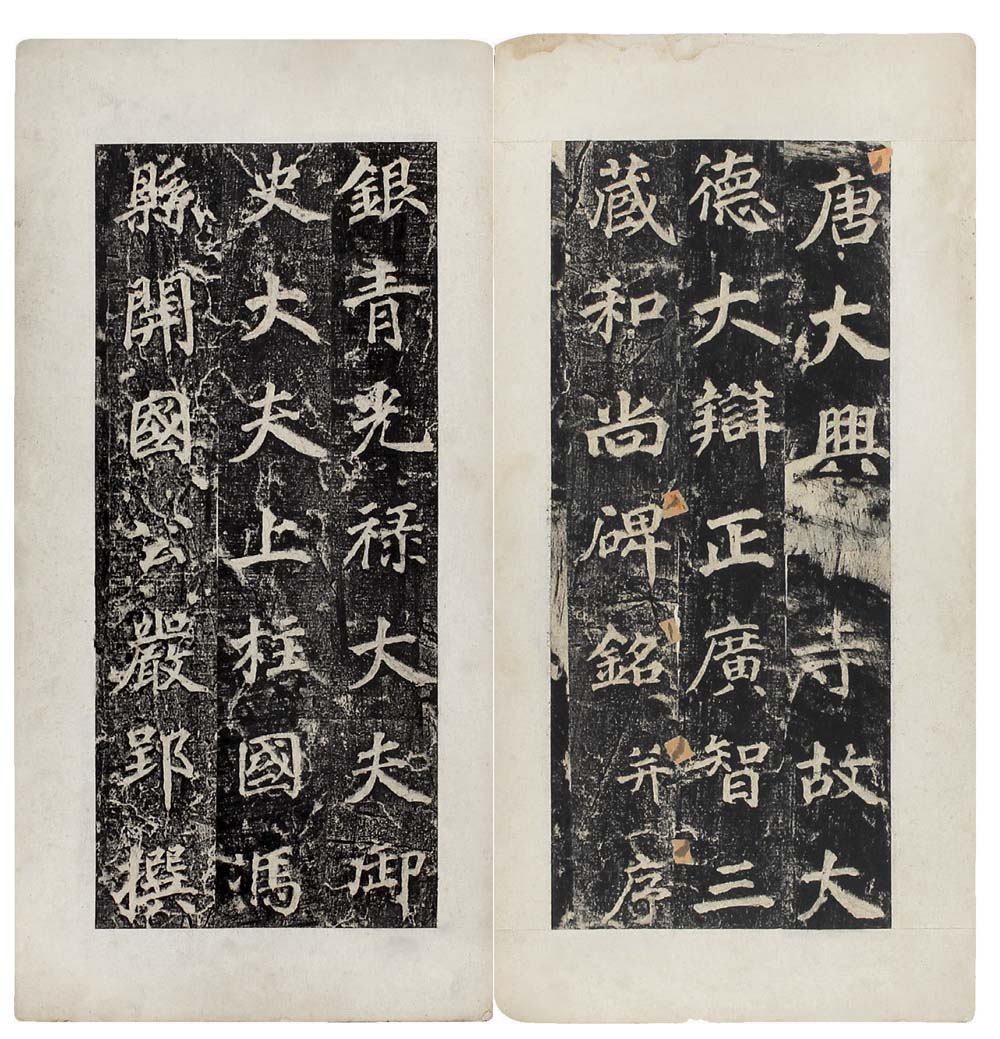 唐大興寺故大
德大辯正廣智三
藏和尚碑銘并序
銀青光禄大夫御
史大夫上柱國馮
縣開國公嚴郢撰